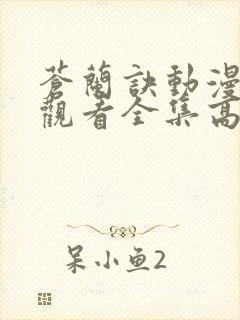 蒼蘭訣動漫
觀看全集高
呆小鱼2